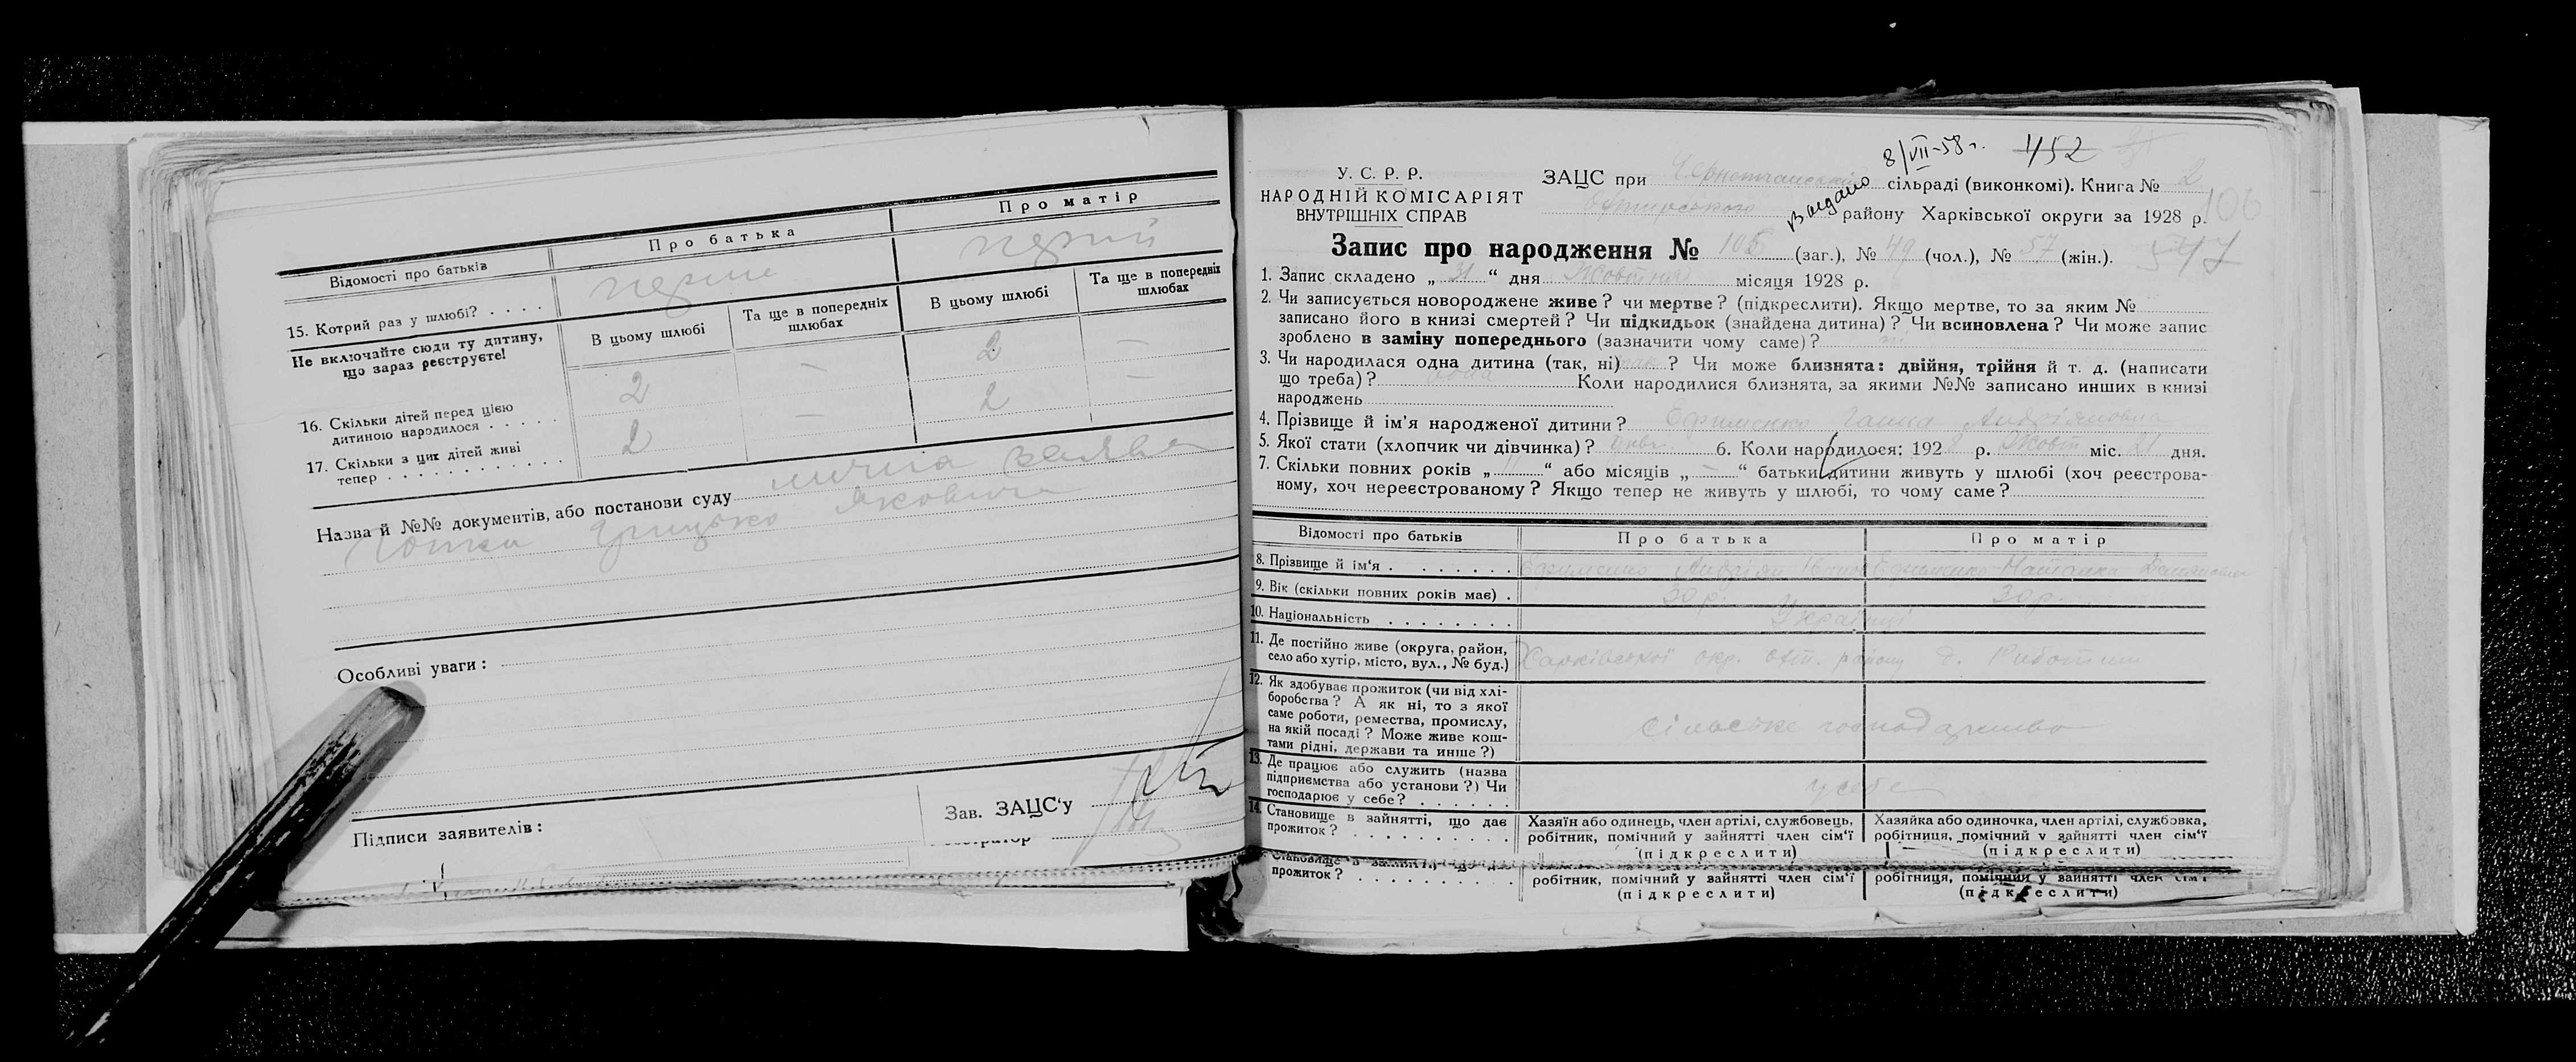 Відомості про батьків
Про батька
Про матір
15. Котрий раз у шлюбі? . . . .
перше
перший
Не включайте сюди ту дитину,
що зараз реєструєте!
В цьому шлюбі
Та ще в попередніх
шлюбах
В цьому шлюбі
Та ще в попередніх
шлюбах
16. Скільки дітей перед цією
дитиною народилося . . . . .
2 — 2 —
17. Скільки з цих дітей живі
тепер . . . . . . . . . . . .
2 — 2 —
Назва й №№ документів, або постанови суду
заява
Грицько Якович
Особливі уваги:
Зав. ЗАЦС'у
Підписи заявителів:
8/VII-58 г.
452
Выдано
У. С. Р. Р.
НАРОДНІЙ КОМІСАРІЯТ
ВНУТРІШНІХ СПРАВ
ЗАЦС при сільраді (виконкомі). Книга № 2
району Харківської округи за 1928 р.
106
Запис про народження № 106 (заг.), № 49 (чол.), № 57 (жін.).
547
1. Запис складено „ 31 “ дня Жовтня місяця 1928 р.
2. Чи записується новороджене живе? чи мертве? (підкреслити). Якщо мертве, то за яким №
записано його в книзі смертей? Чи підкидьок (знайдена дитина)? Чи всиновлена? Чи може запис
зроблено в заміну попереднього (зазначити чому саме)?
3. Чи народилася одна дитина (так, ні) так ? Чи може близнята: двійня, трійня й т. д. (написати
що треба)? Коли народилися близнята, за якими №№ записано инших в книзі
народжень
4. Прізвище й ім'я народженої дитини? Єфименко Ганна Андріяновна
5. Якої стати (хлопчик чи дівчинка)? дівч. 6. Коли народилося: 1928 р. Жовт міс. 21 дня.
7. Скільки повних років „ 11 “ або місяців „ — “ батьки дитини живуть у шлюбі (хоч реєстрова-
ному, хоч нереєстрованому? Якщо тепер не живуть у шлюбі, то чому саме?
Відомості про батьків
Про батька
Про матір
8. Прізвище й ім'я . . . . . . . .
Єфименко Андріян
Єфименко
9. Вік (скільки повних років має) .
30 р.
30 р.
10. Національність . . . . . . . .
Українці
11. Де постійно живе (округа, район,
село або хутір, місто, вул., № буд.)
Харківської окр. району
12. Як здобуває прожиток (чи від хлі-
боробства? А як ні, то з якої
саме роботи, ремества, промислу,
на якій посаді? Може живе кош-
тами рідні, держави та инше?)
сільське господарство
13. Де працює або служить (назва
підприємства або установи?) Чи
господарює у себе? . . . . . .
у себе
14. Становище в зайнятті, що дає
прожиток? . . . . . . . . . .
Хазяїн або одинець, член артілі, службовець,
робітник, помічний у зайнятті член сім'ї
(підкреслити)
Хазяйка або одиночка, член артілі, службовка,
робітниця, помічний у зайнятті член сім'ї
(підкреслити)
прожиток? . . . . . . . . . .
робітник, помічний у зайнятті член сім'ї
(підкреслити)
робітниця, помічний у зайнятті член сім'ї
(підкреслити)